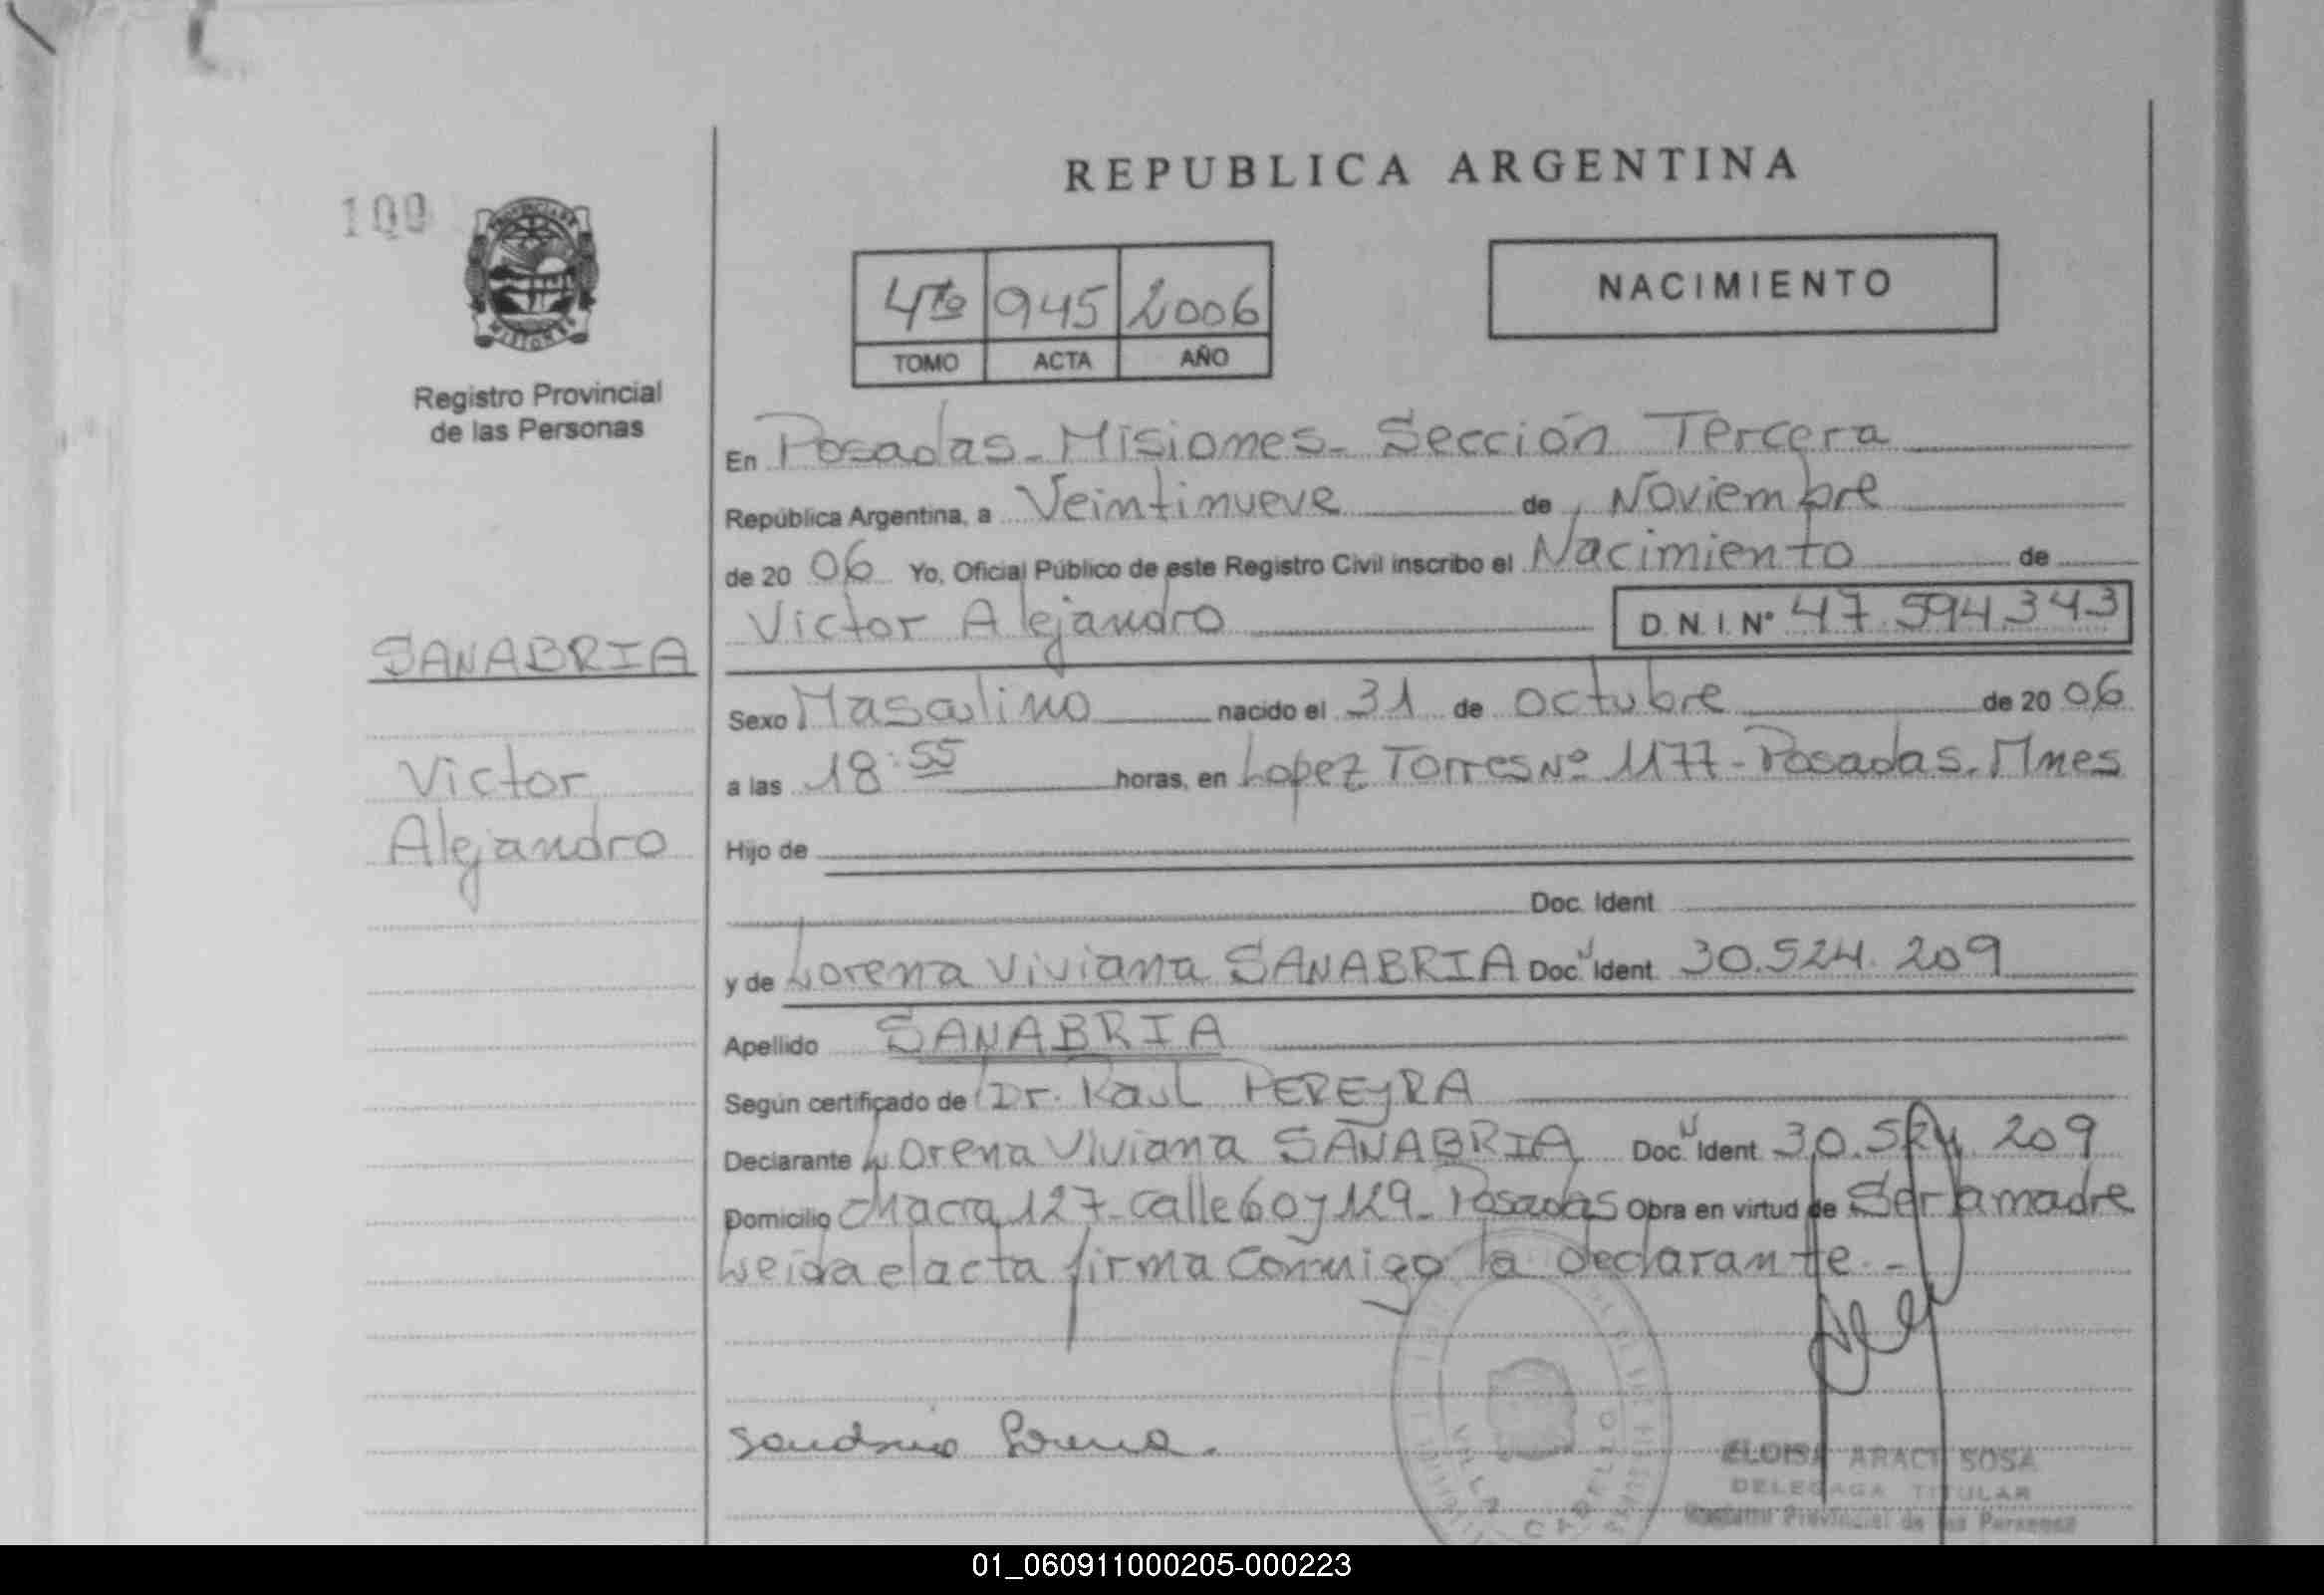 REPUBLICA ARGENTINA
100
4to 945 2006
TOMO ACTA AÑO
NACIMIENTO
PROVINCIA DE
MISIONES
Registro Provincial
de las Personas
En Posadas - Misiones - Sección Tercera
República Argentina, a Veintinueve de Noviembre
de 20 06 Yo, Oficial Público de este Registro Civil inscribo el Nacimiento de
Victor Alejandro D.N.I. Nº 47.594.343
SANABRIA
Victor
Alejandro
Sexo Masculino nacido el 31 de octubre de 20 06
a las 18:55 horas, en Lopez Torres Nº 1177 - Posadas. Mnes
Hijo de
Doc. Ident.
y de Lorena Viviana SANABRIA Doc. Ident. 30.524.209
Apellido SANABRIA
Según certificado de Dr. Raul PEREYRA
Declarante Lorena Viviana SANABRIA Doc. Ident. 30.524.209
Domicilio Chacra 127 - Calle 60 y 129 - Posadas Obra en virtud de Ser la madre
Leida el acta firma conmigo la declarante. -
Sanabria Lorena.
VILLA CABELLO
ELOISA ARACI SOSA
DELEGADA TITULAR
Registro Provincial de las Personas
01_060911000205-000223